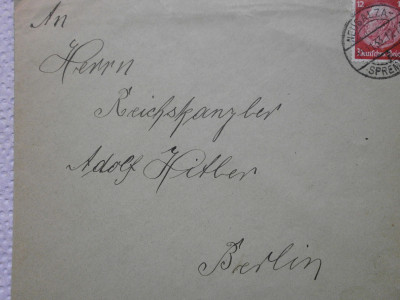 An
Herrn
Reichskanzler
Adolf Hitler
Berlin
12
Deutsches Reich
SPREM